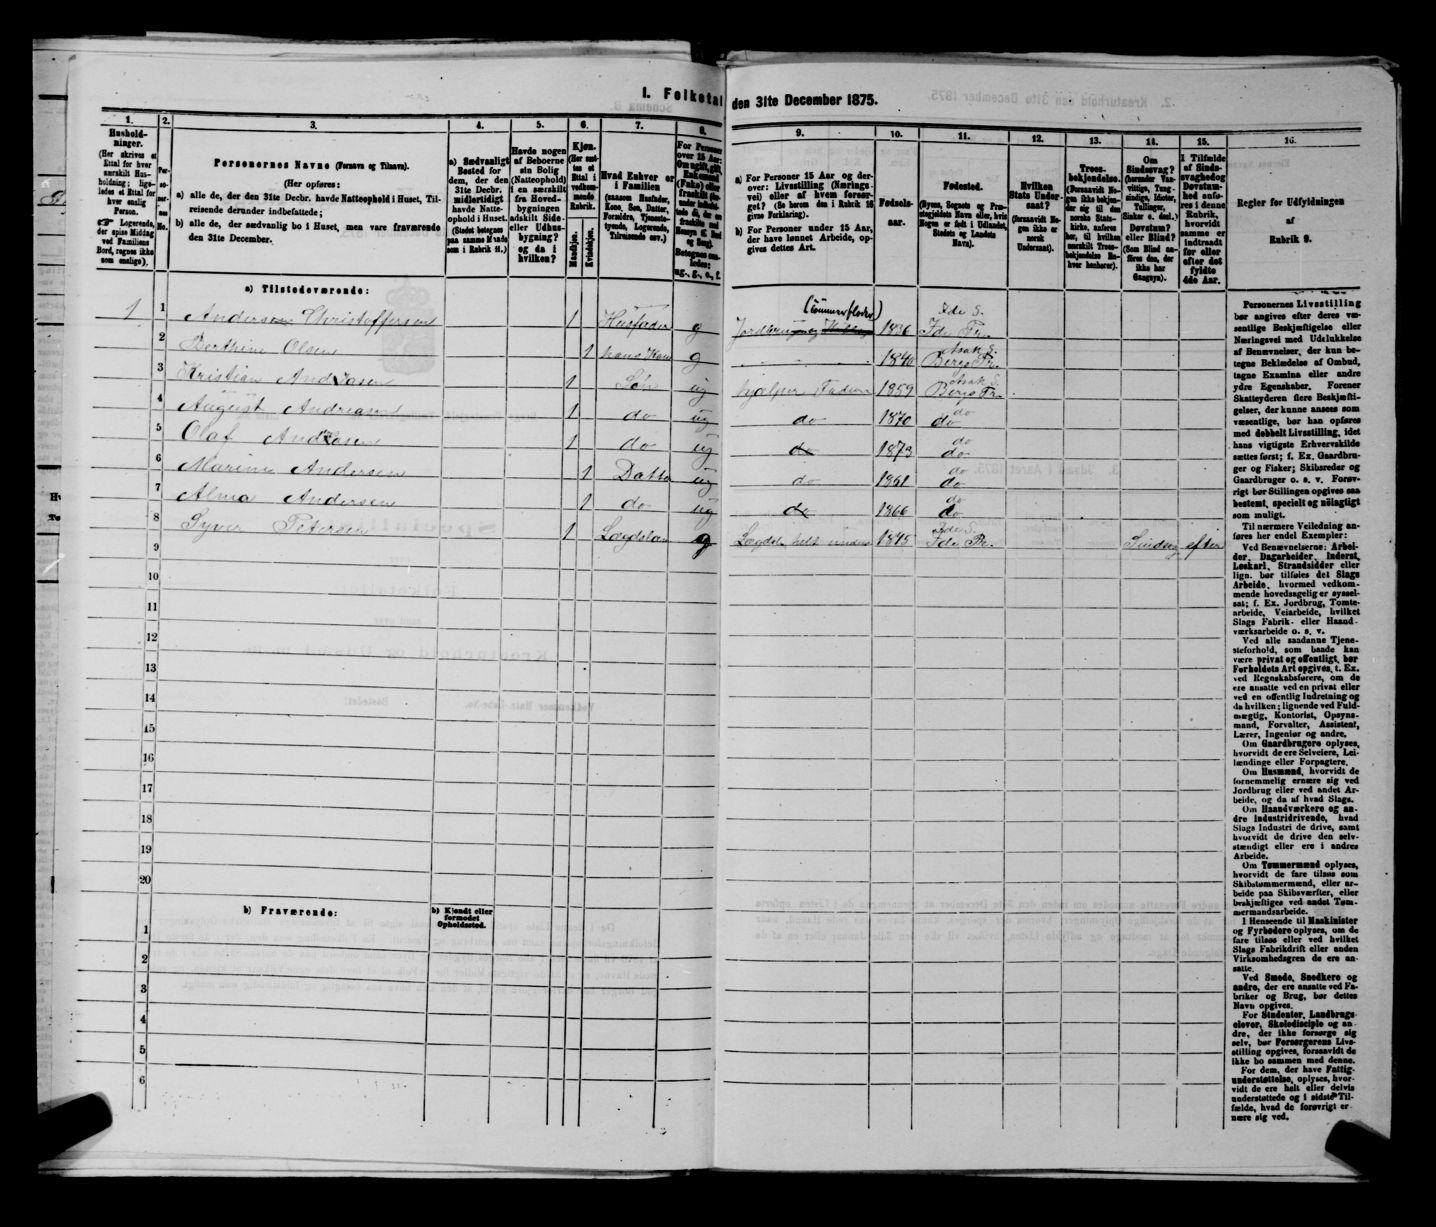 I. Folketal den 31te December 1875.
1.
Husholdninger.
(Her skrives et Ettal for hver særskilt Husholdning; ligeledes et Ettal for hver enslig Person.
☞ Logerende, der spise Middag ved Familiens Bord, regnes ikke som enslige).
2.
Personernes No.
3.
Personernes Navne (Fornavn og Tilnavn).
(Her opføres:
a) alle de, der den 31te Decbr. havde Natteophold i Huset, Tilreisende derunder indbefattede;
b) alle de, der sædvanlig bo i Huset, men vare fraværende den 31te December.
4.
a) Sædvanligt Bosted for dem, der den 31te Decbr. midlertidigt havde Natteophold i Huset.
(Stedet betegnes paa samme Maade som i Rubrik 11.)
5.
Havde nogen af Beboerne sin Bolig (Natteophold) i en særskilt fra Hovedbygningen adskilt Side- eller Udhusbygning? og da i hvilken?
6.
Kjøn.
(Her sættes et Ettal i vedkommende Rubrik.
Mandkjøn.
Kvindekjøn.
7.
Hvad Enhver er i Familien
(saasom Husfader, Kone, Søn, Datter, Forældre, Tjenestetyende, Logerende, Tilreisende osv.)
8.
For Personer over 15 Aar: Om ugift, gift, Enkemand (Enke) eller fraskilt
Betegnes saaledes: ug., g., e., f.
9.
a) For Personer 15 Aar og derover: Livsstilling (Næringsvei) eller af hvem forsørget? (Se herom den i Rubrik 16 givne Forklaring).
b) For Personer under 15 Aar, der have lønnet Arbeide, opgives dettes Art.
10.
Fødselsaar.
11.
Fødested.
(Byens, Sognets og Præstegjeldets Navn eller, hvis Nogen er født i Udlandet, Stedets og Landets Navn).
12.
Hvilken Stats Undersaat?
(forsaavidt Nogen ikke er norsk Undersaat).
13.
Troesbekjendelse.
(Forsaavidt Nogen ikke bekjender sig til den norske Statskirke, anføres her, til hvilken særskilt Troesbekjendelse Enhver henhører).
14.
Om Sindssvag? (herunder Vanvittige, Tungsindige, Idioter, Tullinger, Sinker o. desl.) Døvstum? eller Blind?
(Som Blind anføres den, der ikke har Gangsyn).
15.
I Tilfælde af Sindssvaghed og Døvstumhed anføres i denne Rubrik, hvorvidt samme er indtraadt før eller efter det fyldte 4de Aar.
16.
Regler for Udfyldningen af Rubrik 9.
a) Tilstedeværende:
1 1 Andersen Christoffersen 1 Husfader g Jordbrug og (tømmerfløder) 1836 Ide S. Ide Pr.
2 Berthine Olsen 1 hans Kone g 1840 Asak S. Bergs Pr.
3 Kristian Andreasen 1 Søn ug hjælper Faderen 1859 Asak S. Bergs Pr.
4 August Andreasen 1 do ug do 1870 do do
5 Olaf Andreasen 1 do ug do 1873 do do
6 Marine Andersen 1 Datter ug do 1861 do do
7 Alma Andersen 1 do ug do 1866 do do
8 Syver Petersen 1 Lægdslem g Lægdsl. helt underst 1845 Ide S. Ide Pr. Sindssvag efter
9
10
11
12
13
14
15
16
17
18
19
20
b) Fraværende:
b) Kjendt eller formodet Opholdssted.
1
2
3
4
5
6
Personernes Livsstilling bør angives efter deres væsentlige Beskjæftigelse eller Næringsvei med Udelukkelse af Benævnelser, der kun betegne Beklædelse af Ombud, tagne Examina eller andre ydre Egenskaber. Forener Skatteyderen flere Beskjæftigelser, der kunne ansees som væsentlige, bør han opføres med dobbelt Livsstilling, idet hans vigtigste Erhvervskilde sættes først; f. Ex. Gaardbruger og Fisker; Skibsreder og Gaardbruger o. s. v. Forøvrigt bør Stillingen opgives saa bestemt, specielt og nöiagtigt som muligt.
Til nærmere Veiledning anføres her endel Exempler:
Ved Benævnelserne: Arbeider, Dagarbeider, Inderst, Løskarl, Strandsidder eller lign. bør tilføies det Slags Arbeide, hvormed vedkommende hovedsagelig er sysselsat; f. Ex. Jordbrug, Tomtearbeide, Veiarbeide, hvilket Slags Fabrik- eller Haandværksarbeide o. s. v.
Ved alle saadanne Tjenesteforhold, som baade kan være privat og offentligt, bør Forholdets Art opgives, t. Ex. ved Regnskabsførere, om de ere ansatte ved en privat eller ved en offentlig Indretning og da hvilken; lignende ved Fuldmægtig, Kontorist, Opsynsmand, Forvalter, Assistent, Lærer, Ingeniør og andre.
Om Gaardbrugere oplyses, hvorvidt de ere Selveiere, Leilændinge eller Forpagtere.
Om Husmænd, hvorvidt de fornemmelig ernære sig ved Jordbrug eller ved andet Arbeide, og da af hvad Slags.
Om Haandværkere og andre Industridrivende, hvad Slags Industri de drive, samt hvorvidt de drive den selvstændigt eller ere i andres Arbeide.
Om Tømmermænd oplyses, hvorvidt de fare tilsøs som Skibstømmermænd, eller arbeide paa Skibsværfter, eller beskjæftiges ved andet Tømmermandsarbeide.
I Henseende til Maskinister og Fyrbødere oplyses, om de fare tilsøs eller ved hvilket Slags Fabrikdrift eller anden Virksomhedsgren de ere ansatte.
Ved Smede, Snedkere og andre, der ere ansatte ved Fabriker og Brug, bør dettes Navn opgives.
For Studenter, Landbrugselever, Skoledisciple og andre, der ikke forsørge sig selv, bør Forsørgerens Livsstilling opgives, forsaavidt de ikke bo sammen med denne.
For dem, der have Fattigunderstøttelse, oplyses, hvorvidt de ere helt eller delvis understøttede og i sidste Tilfælde, hvad de forøvrigt ernære sig ved.